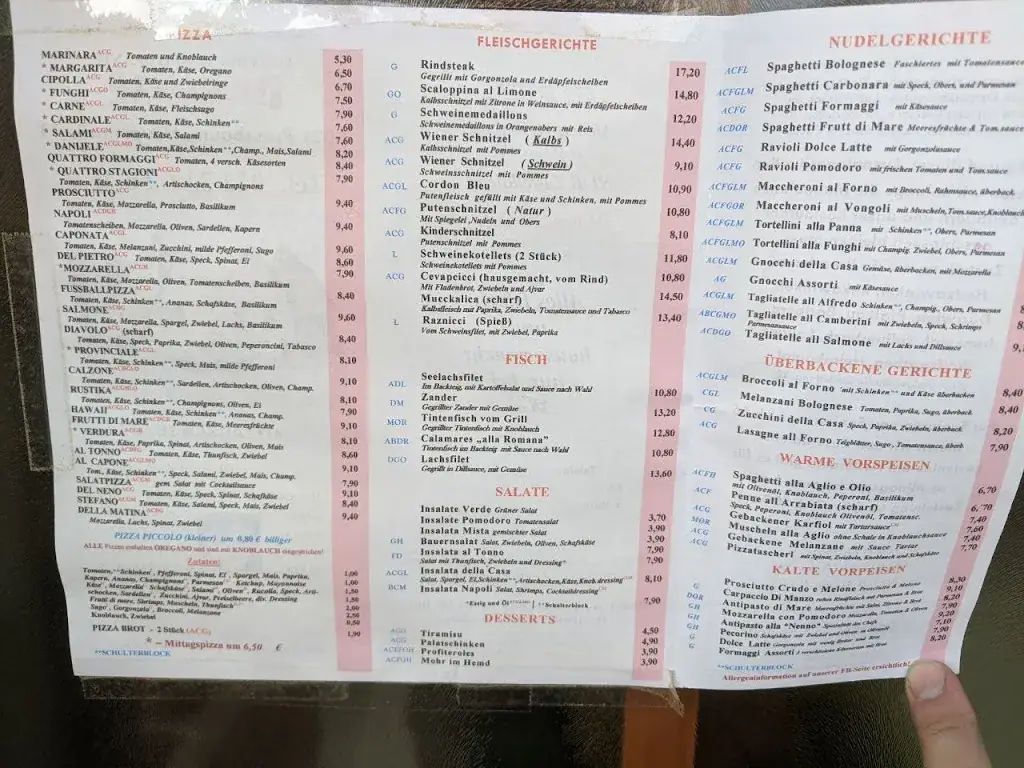 IZZA
MARINARA ACG Tomaten und Knoblauch 5,30
* MARGARITA ACG Tomaten, Käse, Oregano 6,50
CIPOLLA ACG Tomaten, Käse und Zwiebelringe 6,70
* FUNGHI ACGO Tomaten, Käse, Champignons 7,50
* CARNE ACGL Tomaten, Käse, Fleischsugo 7,90
* CARDINALE ACGL Tomaten, Käse, Schinken** 7,60
* SALAMI ACGM Tomaten, Käse, Salami 7,60
* DANIJELE ACGLMO Tomaten,Käse,Schinken**,Champ., Mais,Salami 8,20
QUATTRO FORMAGGI ACG Tomaten, 4 versch. Käsesorten 8,40
* QUATTRO STAGIONI ACGLO 7,90
Tomaten, Käse, Schinken**, Artischocken, Champignons
PROSCIUTTO ACG
Tomaten, Käse, Mozzarella, Prosciutto, Basilikum 9,40
NAPOLI ACDGR
Tomatenscheiben, Mozzarella, Oliven, Sardellen, Kapern 9,40
CAPONATA ACGL
Tomaten, Käse, Melanzani, Zucchini, milde Pfefferoni, Sugo 9,60
DEL PIETRO ACG Tomaten, Käse, Speck, Spinat, Ei 8,60
*MOZZARELLA ACGH 7,90
Tomaten, Käse, Mozzarella, Oliven, Tomatenscheiben, Basilikum
FUSSBALLPIZZA ACGL
Tomaten, Käse, Schinken**, Ananas, Schafskäse, Basilikum 8,40
SALMONE ACDG
Tomaten, Käse, Mozzarella, Spargel, Zwiebel, Lachs, Basilikum 9,60
DIAVOLO ACG (scharf)
Tomaten, Käse, Speck, Paprika, Zwiebel, Oliven, Peperoncini, Tabasco 8,40
* PROVINCIALE ACGL
Tomaten, Käse, Schinken**, Speck, Mais, milde Pfefferoni 8,10
CALZONE
Tomaten, Käse, Schinken**, Sardellen, Artischocken, Oliven, Champ. 9,10
RUSTIKA Tomaten, Käse, Schinken**, Champignons, Oliven, Ei 8,10
HAWAII ACGLO Tomaten, Käse, Schinken**, Ananas, Champ. 7,90
FRUTTI DI MARE Tomaten, Käse, Meeresfrüchte 9,10
* VERDURA ACGR
Tomaten, Käse, Paprika, Spinat, Artischocken, Oliven, Mais 8,10
AL TONNO Tomaten, Käse, Thunfisch, Zwiebel 8,60
AL CAPONE ACGLMO
Tom., Käse, Schinken**, Speck, Salami, Zwiebel, Mais, Champ. 9,10
SALATPIZZA gem Salat mit Cocktailsauce 7,90
DEL NENO ACG Tomaten, Käse, Speck, Spinat, Schafskäse 9,10
STEFANO ACGM Tomaten, Käse, Salami, Speck, Mais, Zwiebel 8,40
DELLA MATINA ACDG 9,40
Mozzarella, Lachs, Spinat, Zwiebel
PIZZA PICCOLO (kleiner) um 0,80 € billiger
ALLE Pizzen enthalten OREGANO und sind mit KNOBLAUCH eingestrichen!
Zutaten:
Tomaten, **Schinken, Pfefferoni, Spinat, Ei, Spargel, Mais, Paprika, 1,00
Kapern, Ananas, Champignons, Parmesan, Ketchup, Mayonnaise 1,00
Käse, Mozzarella, Schafskäse, Salami, Oliven, Rucolla, Speck, Artischocken, Sardellen, Zwiebel, Ajvar, Preiselbeere, div. Dressing 1,50
Frutti di mare, Shrimps, Muscheln, Thunfisch
Sugo, Gorgonzola, Broccoli, Melanzane
Knoblauch, Zwiebel 0,50
PIZZA BROT - 2 Stück (ACG) 1,90
* = Mittagspizza um 6,50 €
**SCHULTERBLOCK
FLEISCHGERICHTE
G Rindsteak 17,20
Gegrillt mit Gorgonzola und Erdäpfelscheiben
GO Scaloppina al Limone 14,80
Kalbsschnitzel mit Zitrone in Weinsauce, mit Erdäpfelscheiben
G Schweinemedaillons 12,20
Schweinemedaillons in Orangenobers mit Reis
ACG Wiener Schnitzel ( Kalbs ) 14,40
Kalbsschnitzel mit Pommes
ACG Wiener Schnitzel (Schwein) 9,10
Schweinsschnitzel mit Pommes
ACGL Cordon Bleu 10,90
Putenfleisch gefüllt mit Käse und Schinken, mit Pommes
ACFG Putenschnitzel ( Natur ) 10,80
Mit Spiegelei ,Nudeln und Obers
ACG Kinderschnitzel 8,10
Putenschnitzel mit Pommes
L Schweinekotellets (2 Stück) 11,80
Schweinekotellets mit Pommes
ACG Cevapcici (hausgemacht, vom Rind) 10,80
Mit Fladenbrot, Zwiebeln und Ajvar
Mucckalica (scharf) 14,50
Kalbsfleisch mit Paprika, Zwiebeln, Tomatensauce und Tabasco
L Raznicci (Spieß) 13,40
Vom Schweinsfilet, mit Zwiebel, Paprika
FISCH
ADL Seelachsfilet 10,80
Im Backteig, mit Kartoffelsalat und Sauce nach Wahl
DM Zander 13,20
Gegrillter Zander mit Gemüse
MOR Tintenfisch vom Grill 12,80
Gegrillter Tintenfisch mit Knoblauch
ABDR Calamares „alla Romana” 10,80
Tintenfisch im Backteig mit Sauce nach Wahl
DGO Lachsfilet 13,60
Gegrillt in Dillsauce, mit Gemüse
SALATE
Insalate Verde Grüner Salat 3,70
Insalate Pomodoro Tomatensalat 3,90
Insalata Mista gemischter Salat 3,90
GH Bauernsalat Salat, Zwiebeln, Oliven, Schafskäse 7,90
FD Insalata al Tonno 7,90
Salat mit Thunfisch, Zwiebeln und Dressing*
ACGL Insalata della Casa 8,10
Salat, Spargel, Ei,Schinken**, Artischocken,Käse,Knob.dressing
BCM Insalata Napoli Salat, Shrimps, Cocktaildressing 7,90
*Essig und Öl | **Schulterblock
DESSERTS
ACG Tiramisu 4,50
ACG Palatschinken 4,90
ACEFGH Profiteroles 3,90
ACFGH Mohr im Hemd 3,90
NUDELGERICHTE
ACFL Spaghetti Bolognese Faschiertes mit Tomatensauce
ACFGLM Spaghetti Carbonara mit Speck, Obers, und Parmesan
ACFG Spaghetti Formaggi mit Käsesauce
ACDOR Spaghetti Frutt di Mare Meeresfrüchte & Tom.sauce
ACFG Ravioli Dolce Latte mit Gorgonzolasauce
ACFG Ravioli Pomodoro mit frischen Tomaten und Tom.sauce
ACFGLM Maccheroni al Forno mit Broccoli, Rahmsauce, überback.
ACFGOR Maccheroni al Vongoli mit Muscheln,Tom.sauce,Knoblauch
ACFGLM Tortellini alla Panna mit Schinken**, Obers, Parmesan
ACFGLMO Tortellini alla Funghi mit Champig. Zwiebel, Obers, Parmesan
ACGLM Gnocchi della Casa Gemüse, überbacken, mit Mozzarella
AG Gnocchi Assorti mit Käsesauce
ACGLM Tagliatelle al Alfredo Schinken**, Champig., Obers, Parmesan
ABCGMO Tagliatelle al Camberini mit Zwiebeln, Speck, Schrimps
Parmesansauce
ACDGO Tagliatelle al Salmone mit Lachs und Dillsauce
ÜBERBACKENE GERICHTE
ACGLM Broccoli al Forno mit Schinken** und Käse überbacken 8,40
CGL Melanzani Bolognese Tomaten, Paprika, Sugo, überback. 8,40
CG Zucchini della Casa Speck, Paprika, Zwiebeln, überback. 8,20
ACG Lasagne all Forno Teigblätter, Sugo, Tomatensauce, überb. 7,90
WARME VORSPEISEN
ACFH Spaghetti alla Aglio e Olio 6,70
mit Olivenöl, Knoblauch, Peperoni, Basilikum
ACF Penne all Arrabiata (scharf) 6,70
Speck, Peperoni, Knoblauch Olivenöl, Tomatensc.
ACG Gebackener Karfiol mit Tartarsauce 7,40
MOR Muscheln alla Aglio ohne Schale in Knoblauchsauce 7,60
ACG Gebackene Melanzane mit Sauce Tartar 7,40
ACG Pizzatascherl mit Spinat, Zwiebeln, Knoblauch und Schafskäse 7,70
KALTE VORPEISEN
G Prosciutto Crudo e Melone Prosciutto & Melone 8,30
DOR Carpaccio Di Manzo 9,10
GH Antipasto di Mare Meeresfrüchte mit Salat, Zitrone & Brot 7,90
G Mozzarella con Pomodoro Mozzarella, Tomaten & Oliven 9,20
GH Antipasto alla "Nenno" Spezialität des Chefs 7,10
GH Pecorino Schafskäse mit Zwiebel und Oliven 7,90
G Dolce Latte Gorgonzola mit wenig Butter und Brot 8,20
G Formaggi Assorti
**SCHULTERBLOCK
Allergeninformation auf unserer FB-Seite ersichtlich!